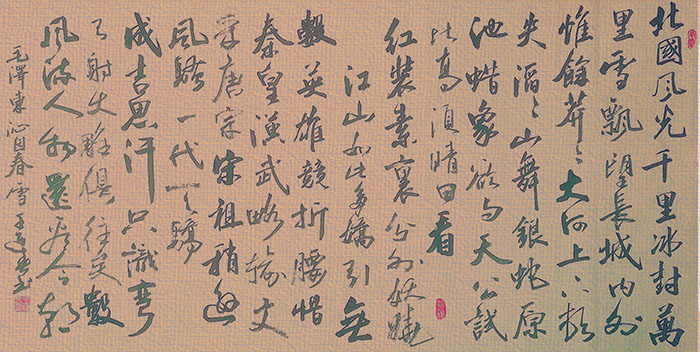 北國风光千里冰封萬
里雪飄望長城内外
惟餘莽〻大河上下頓
失滔〻山舞銀蛇原
池蜡象欲与天公試
比高須晴日看
红裝素裹分外妖嬈
江山如此多嬌引無
數英雄競折腰惜
秦皇漢武略输文
采唐宗宋祖稍遜
风騷一代天驕
成吉思汗只識彎
弓射大雕俱往矣數
风流人物還看今朝
毛澤東沁园春雪